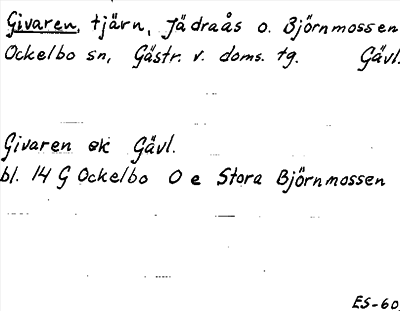 Givaren, tjärn, Jädraås o. Björnmossen
Ockelbo sn, Gästr. v. doms. tg. Gävl.
Givaren ek Gävl.
bl. 14 G Ockelbo O e Stora Björnmossen
ES-60.